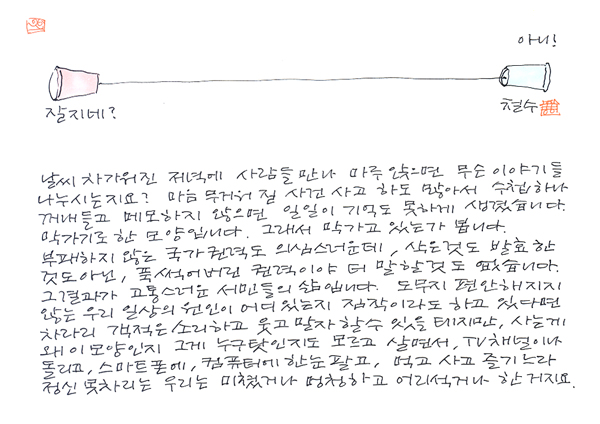 아니!
잘지네?
철수
날씨 차가워진 저녁에 사람들 만나 마주 앉으면 무슨 이야기들
나누시는지요? 마음 무거워 질 사건 사고 하도 많아서 수첩 하나
꺼내들고 메모하지 않으면 일일이 기억도 못하게 생겼습니다.
막가기로 한 모양입니다. 그래서 막가고 있는가 봅니다.
부패하지 않은 국가권력도 의심스러운데, 삭은것도 발효한
것도 아닌, 푹 썩어버린 권력이야 더 말할 것도 없습니다.
그 결과가 고통스러운 서민들의 삶입니다. 도무지 편안해지지
않는 우리 일상의 원인이 어디 있는지 짐작이라도 하고 있다면
차라리 객적은 소리하고 웃고 말자 할 수 있을 테지만, 사는게
왜 이 모양인지 그게 누구탓인지도 모르고 살면서, TV채널이나
돌리고, 스마트폰에, 컴퓨터에 한눈 팔고, 먹고 사고 즐기느라
정신 못차리는 우리는 미쳤거나 멍청하고 어리석거나 한 거지요.